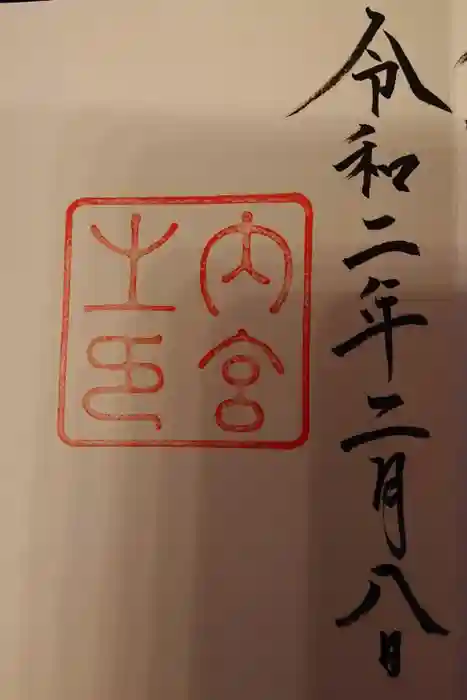 令和二年二月八日
内宮
之印